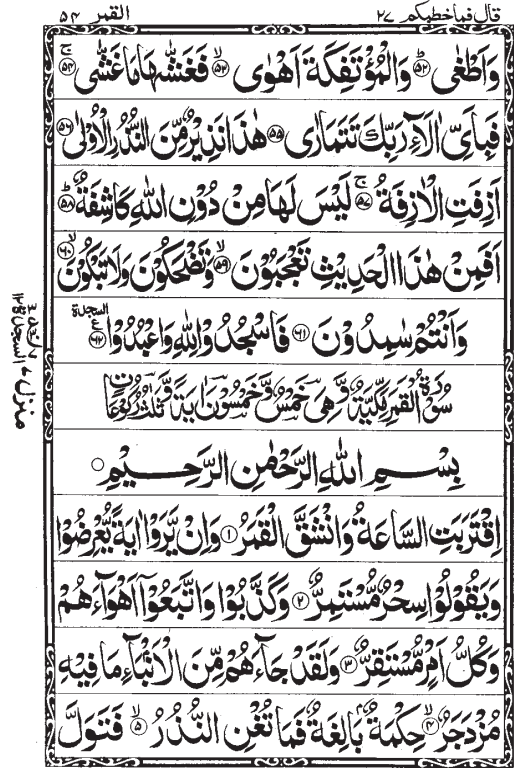 قال فما خطبکم ۲۷
القمر ۵۴
وَاَطْغٰى ۙ﴿۵۲﴾ وَالْمُؤْتَفِكَةَ اَهْوٰى ۙ﴿۵۳﴾ فَغَشّٰىهَا مَا غَشّٰى ۚ﴿۵۴﴾
فَبِاَىِّ اٰلَآءِ رَبِّكَ تَتَمَارٰى ﴿۵۵﴾ هٰذَا نَذِيْرٌ مِّنَ النُّذُرِ الْاُوْلٰى ﴿۵۶﴾
اَزِفَتِ الْاٰزِفَةُ ۚ﴿۵۷﴾ لَيْسَ لَهَا مِنْ دُوْنِ اللّٰهِ كَاشِفَةٌ ؕ﴿۵۸﴾
اَفَمِنْ هٰذَا الْحَدِيْثِ تَعْجَبُوْنَ ۙ﴿۵۹﴾ وَتَضْحَكُوْنَ وَلَا تَبْكُوْنَ ۙ﴿۶۰﴾
وَاَنْتُمْ سٰمِدُوْنَ ﴿۶۱﴾ فَاسْجُدُوْا لِلّٰهِ وَاعْبُدُوْا ﴿۶۲﴾ السجدة
سُوْرَةُ الْقَمَرِ مَكِّيَّةٌ وَّهِىَ خَمْسٌ وَّخَمْسُوْنَ اٰيَةً وَّثَلٰثُ رُكُوْعَاتٍ
بِسْمِ اللّٰهِ الرَّحْمٰنِ الرَّحِيْمِ ○
اِقْتَرَبَتِ السَّاعَةُ وَانْشَقَّ الْقَمَرُ ﴿۱﴾ وَاِنْ يَّرَوْا اٰيَةً يُّعْرِضُوْا
وَيَقُوْلُوْا سِحْرٌ مُّسْتَمِرٌّ ﴿۲﴾ وَكَذَّبُوْا وَاتَّبَعُوْٓا اَهْوَآءَهُمْ
وَكُلُّ اَمْرٍ مُّسْتَقِرٌّ ﴿۳﴾ وَلَقَدْ جَآءَهُمْ مِّنَ الْاَنْۢبَآءِ مَا فِيْهِ
مُزْدَجَرٌ ۙ﴿۴﴾ حِكْمَةٌۢ بَالِغَةٌ فَمَا تُغْنِ النُّذُرُ ۙ﴿۵﴾ فَتَوَلَّ
منزل ۷ السجدة ۱۲